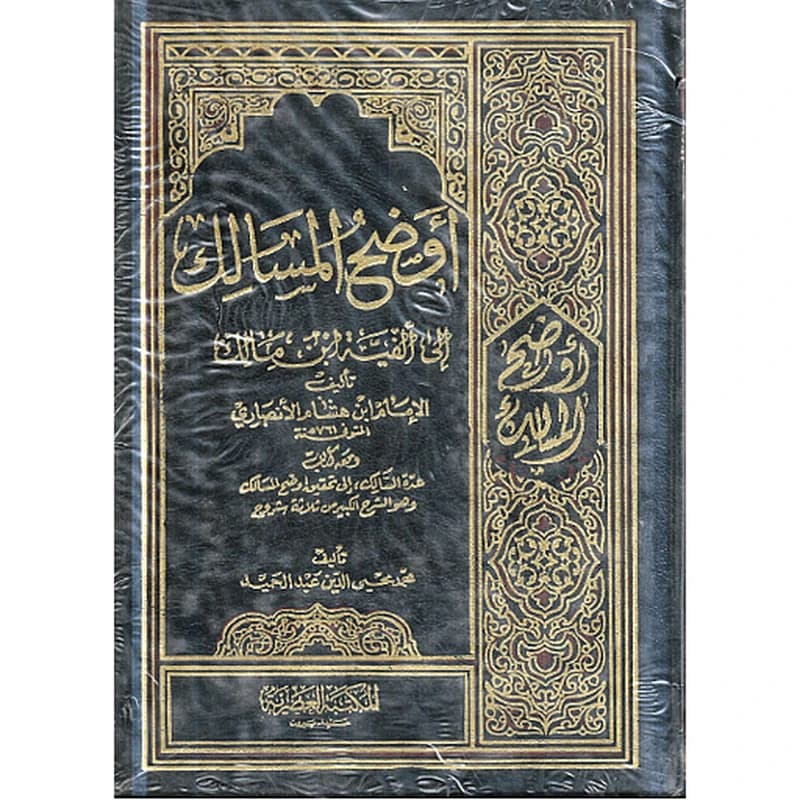 أوضح المسالك
إلى ألفية ابن مالك
تأليف
الإمام ابن هشام الأنصاري
المتوفى سنة ٧٦١هـ
ومعه كتاب
عدة السالك، إلى تحقيق أوضح المسالك
وهو الشرح الكبير من ثلاثة شروح
تأليف
محمد محيي الدين عبد الحميد
المكتبة العصرية
صيدا - بيروت
أوضح
المسالك